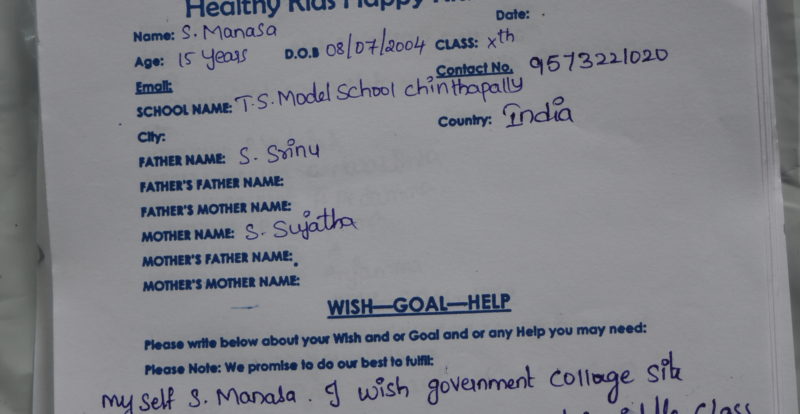 Healthy Kids Happy
Date:
Name: S. Manasa
Age: 15 Years D.O.B 08/07/2004 CLASS: Xth
Email: Contact No. 9573221020
SCHOOL NAME: T.S. Model School Chinthapally
City: Country: India
FATHER NAME: S. Srinu
FATHER'S FATHER NAME:
FATHER'S MOTHER NAME:
MOTHER NAME: S. Sujatha
MOTHER'S FATHER NAME:
MOTHER'S MOTHER NAME:
WISH—GOAL—HELP
Please write below about your Wish and or Goal and or any Help you may need:
Please Note: We promise to do our best to fulfil:
My Self S. Manasa. I wish government collage
class